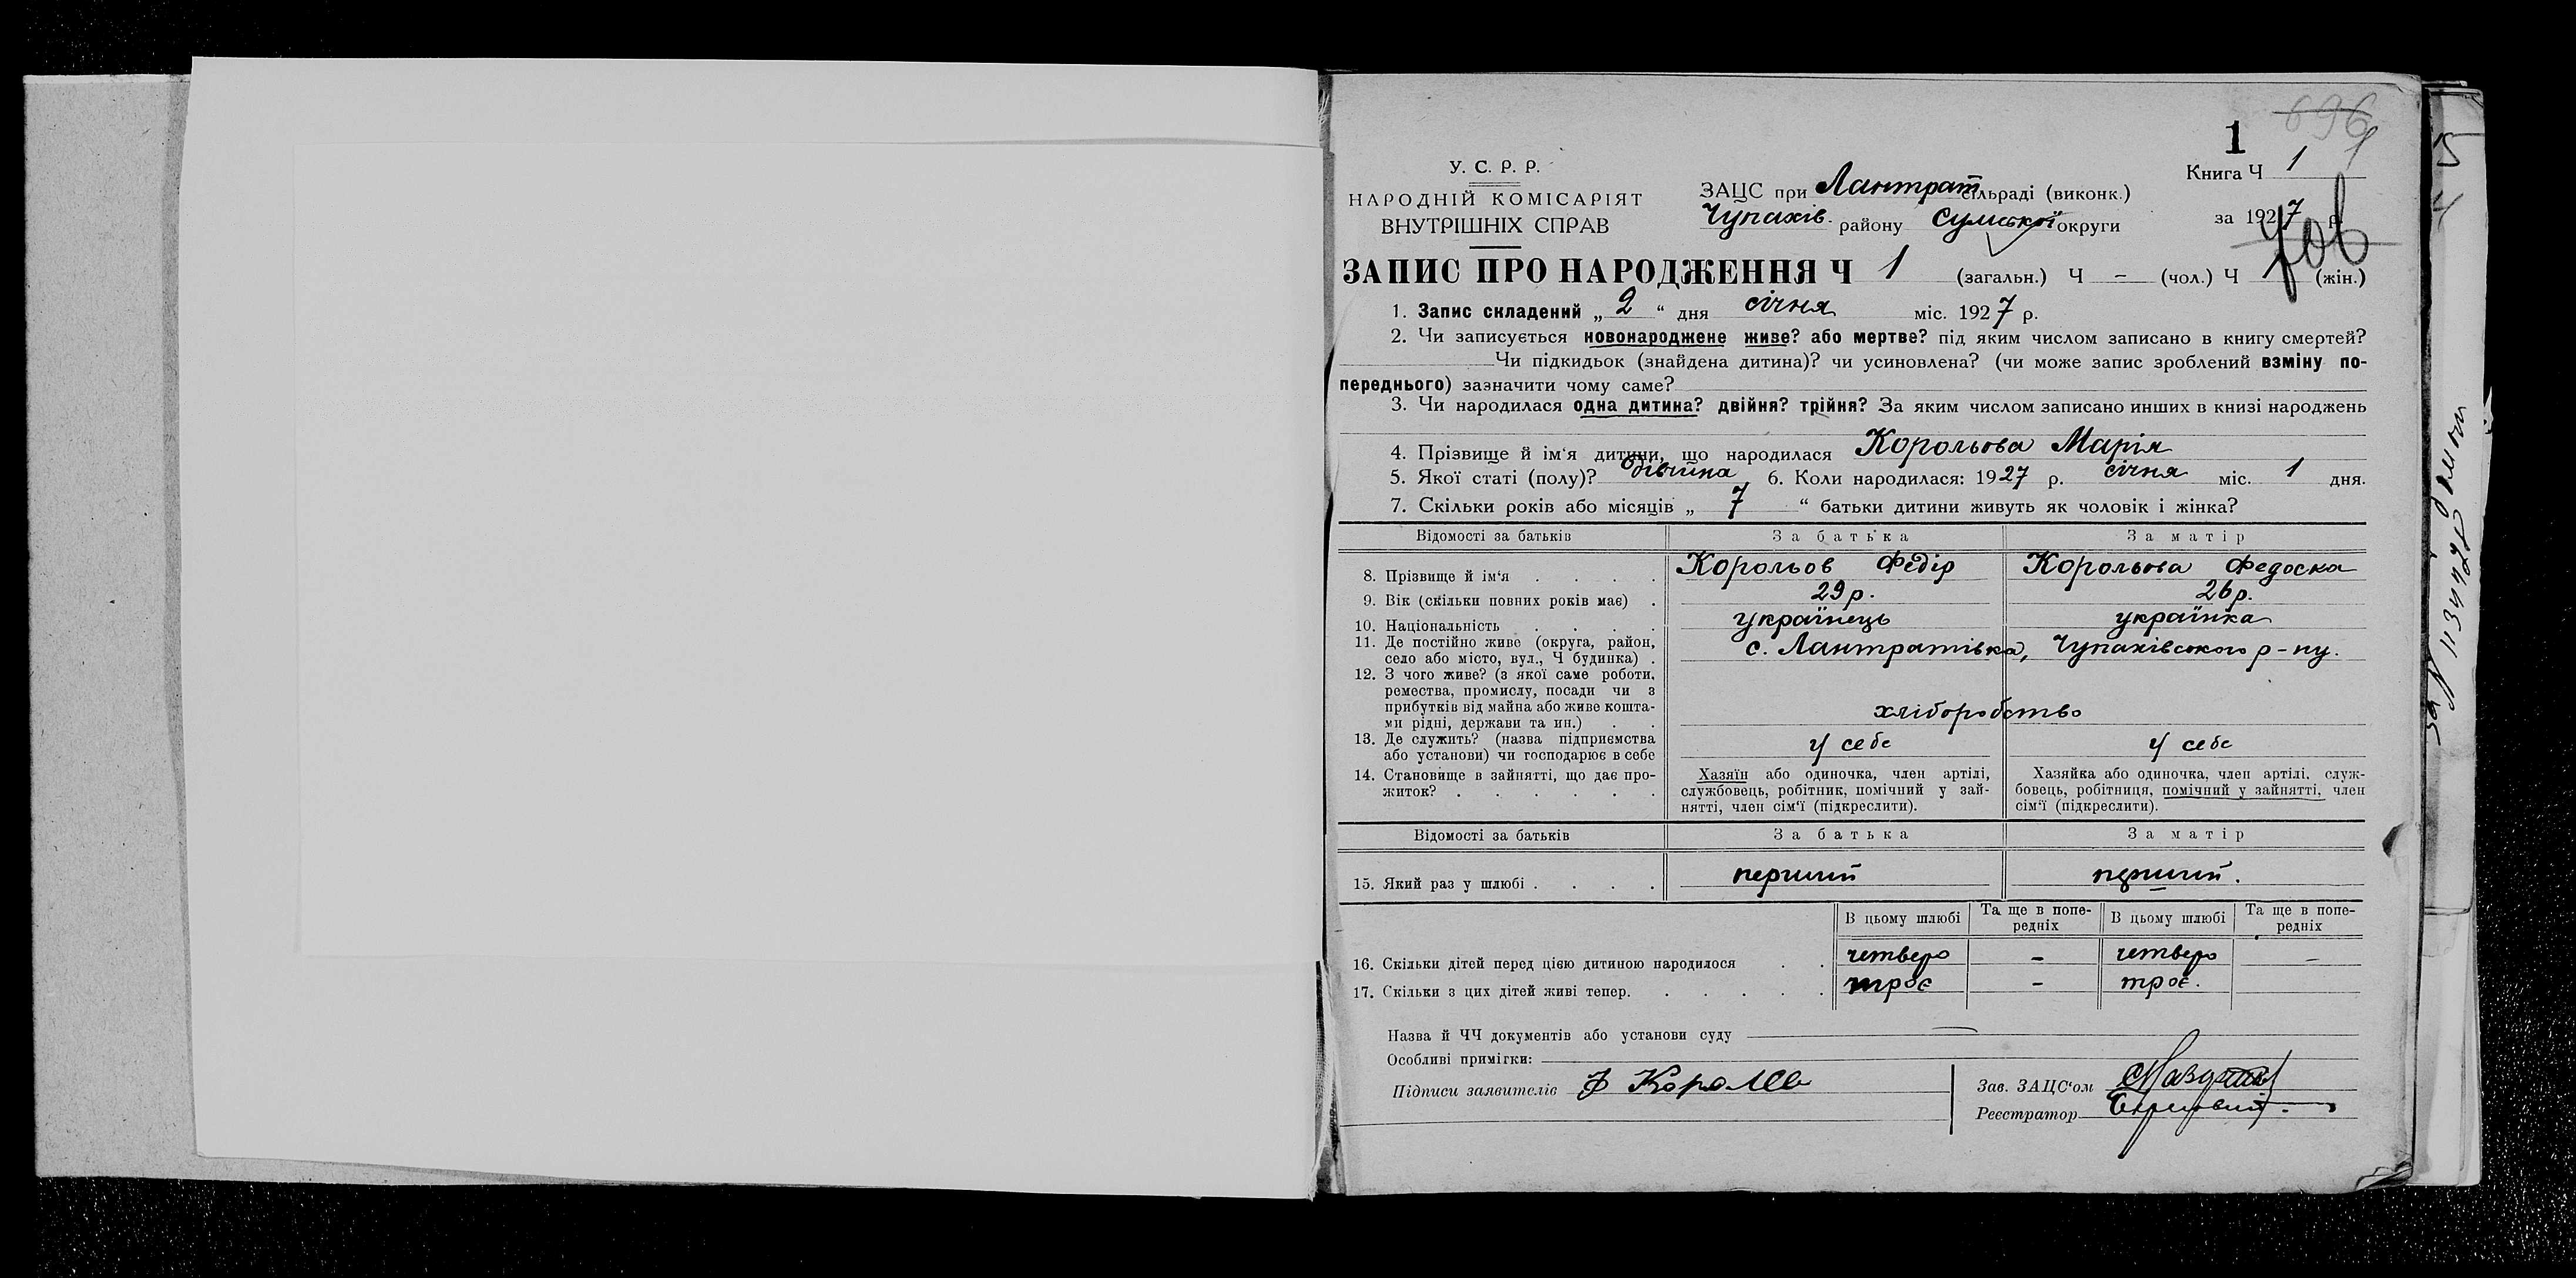 696
1
1
Книга Ч 1
У. С. Р. Р.
НАРОДНІЙ КОМІСАРІЯТ
ВНУТРІШНІХ СПРАВ
ЗАЦС при Лантрат сільраді (виконк.)
Чупахів. району Сумської округи
за 1927 р.
ЗАПИС ПРО НАРОДЖЕННЯ Ч 1 (загальн.) Ч – (чол.) Ч 1 (жін.)
1. Запис складений „ 2 “ дня січня міс. 1927 р.
2. Чи записується новонароджене живе? або мертве? під яким числом записано в книгу смертей?
Чи підкидьок (знайдена дитина)? чи усиновлена? (чи може запис зроблений взміну по-
переднього) зазначити чому саме?
3. Чи народилася одна дитина? двійня? трійня? За яким числом записано инших в книзі народжень
4. Прізвище й ім‘я дитини, що народилася Корольова Марія
5. Якої статі (полу)? 6. Коли народилася: 1927 р. січня міс. 1 дня.
7. Скільки років або місяців „ 7 “ батьки дитини живуть як чоловік і жінка?
Відомості за батьків За батька За матір
8. Прізвище й ім‘я . . . . Корольов Федір Корольова Федоска
9. Вік (скільки повних років має) . 29 р. 26 р.
10. Національність . . . . українець українка
11. Де постійно живе (округа, район,
село або місто, вул., Ч будинка) . с. Лантратівка, Чупахівського р-ну.
12. З чого живе? (з якої саме роботи,
ремества, промислу, посади чи з
прибутків від майна або живе кошта-
ми рідні, держави та ин.) . . хліборобство
13. Де служить? (назва підприємства
або установи) чи господарює в себе у себе у себе
14. Становище в зайнятті, що дає про-
житок? . . . . . .
Хазяїн або одиночка, член артілі,
службовець, робітник, помічний у зай-
нятті, член сім‘ї (підкреслити).
Хазяйка або одиночка, член артілі, служ-
бовець, робітниця, помічний у зайнятті, член
сім‘ї (підкреслити).
Відомості за батьків За батька За матір
15. Який раз у шлюбі . . . . перший перший.
В цьому шлюбі Та ще в попе-
редніх В цьому шлюбі Та ще в попе-
редніх
16. Скільки дітей перед цією дитиною народилося . . четверо – четверо –
17. Скільки з цих дітей живі тепер. . . . . . троє – троє.
Назва й ЧЧ документів або установи суду —
Особливі примітки:
Підписи заявителів Ф Королев
Зав. ЗАЦС‘ом
Реєстратор